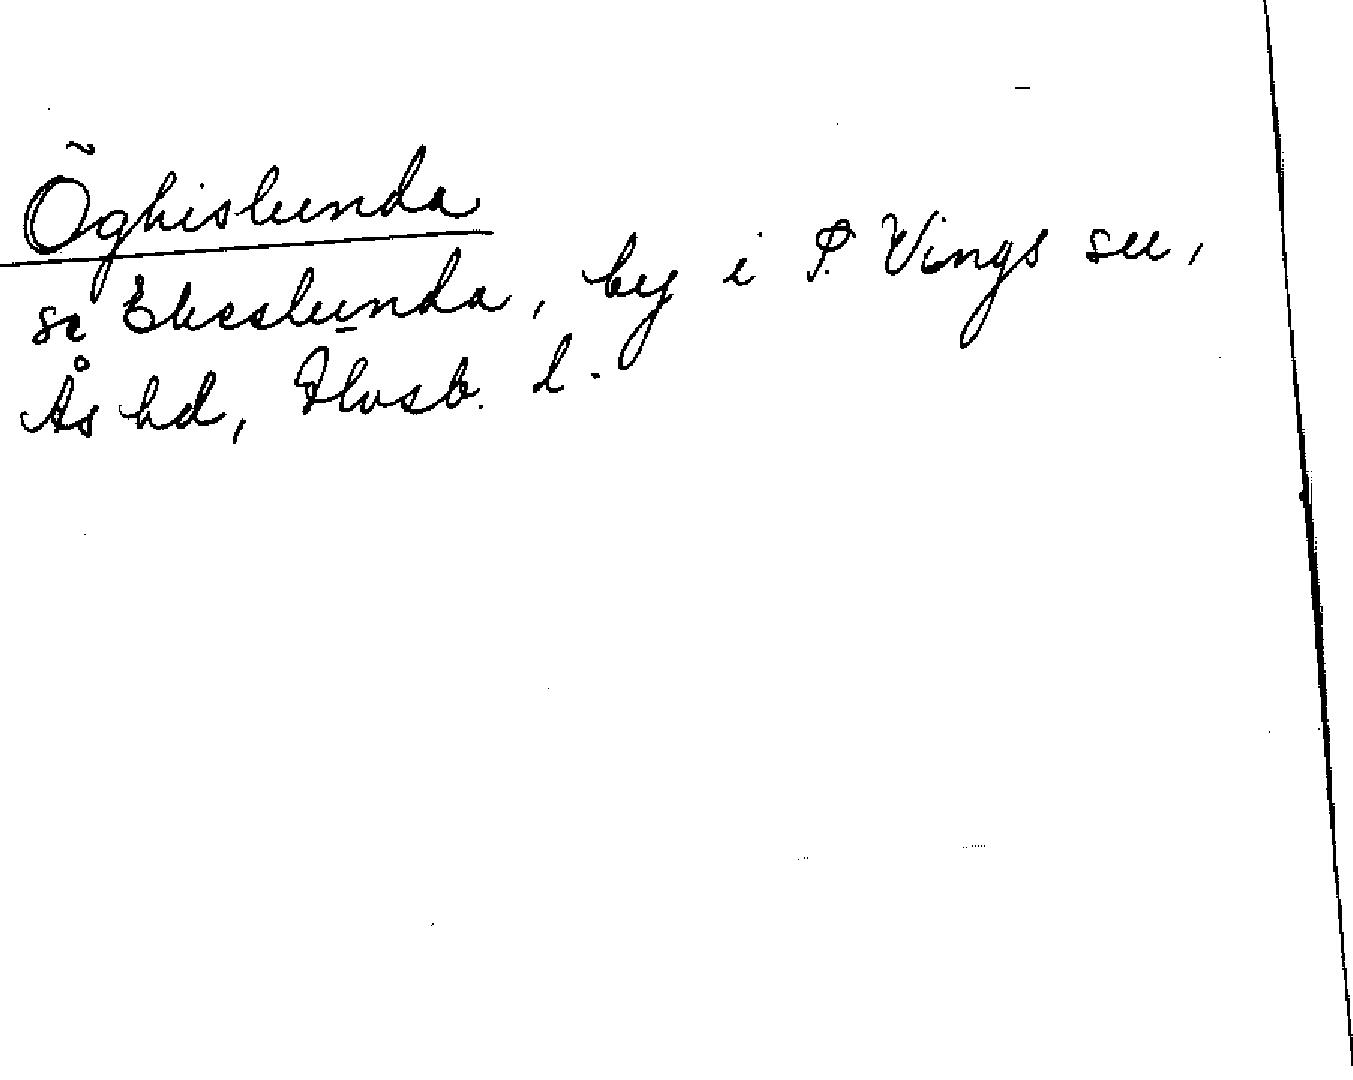 Öghislunda
se Ekeslunda, by i S. Vings sn,
Ås hd, Älvsb. l.